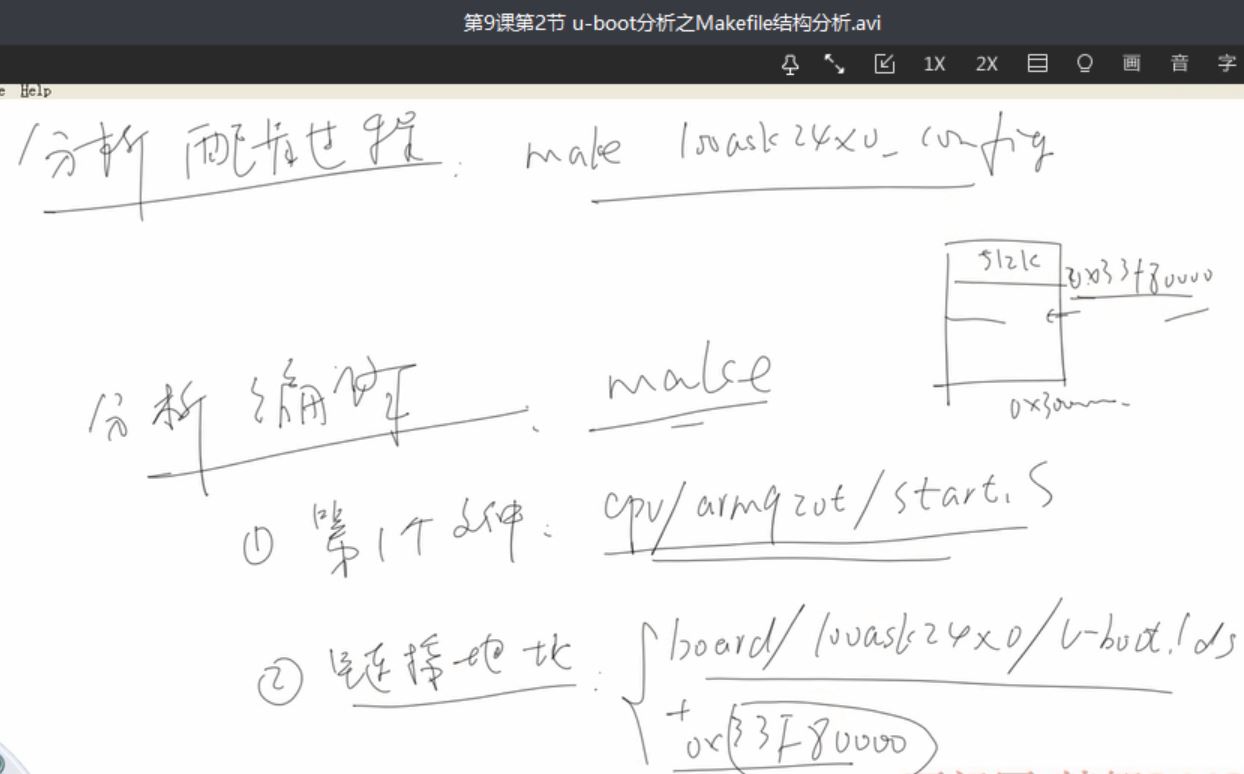 第9课第2节 u-boot分析之Makefile结构分析.avi
1X 2X 画 音 字
e Help
分析配置过程: make 100ask24x0_config
512k
0x33f80000
0x30000000
分析编译: make
① 第1个文件: cpu/arm920t/start.S
② 链接地址: board/100ask24x0/u-boot.lds
+ 0x33F80000